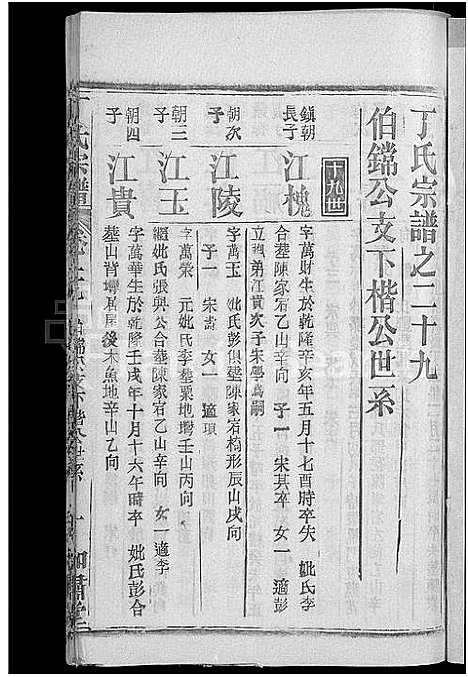 丁氏宗譜之二十九
伯鐺公支下楷公世系
十九世
鎮朝長子
江槐
字萬財生於乾隆辛亥年五月十七酉時卒失 妣氏李
合塟陳家宕乙山辛向 子一 宋其卒 女一 適彭
立抱弟江貴次子朱學為嗣
朝次子
江陵
字萬玉 妣氏彭俱塟陳家宕椅形辰山戌向
子一 宋壽 女一 適項
朝三子
江玉
字萬榮 元妣氏李塟粟地塆壬山丙向
繼妣氏張與公合塟陳家宕乙山辛向 女一適李
朝四子
江貴
字萬華生於乾隆壬戌年十月十六午時卒 妣氏彭合
塟山背塆居屋後木魚地辛山乙向
丁氏宗譜